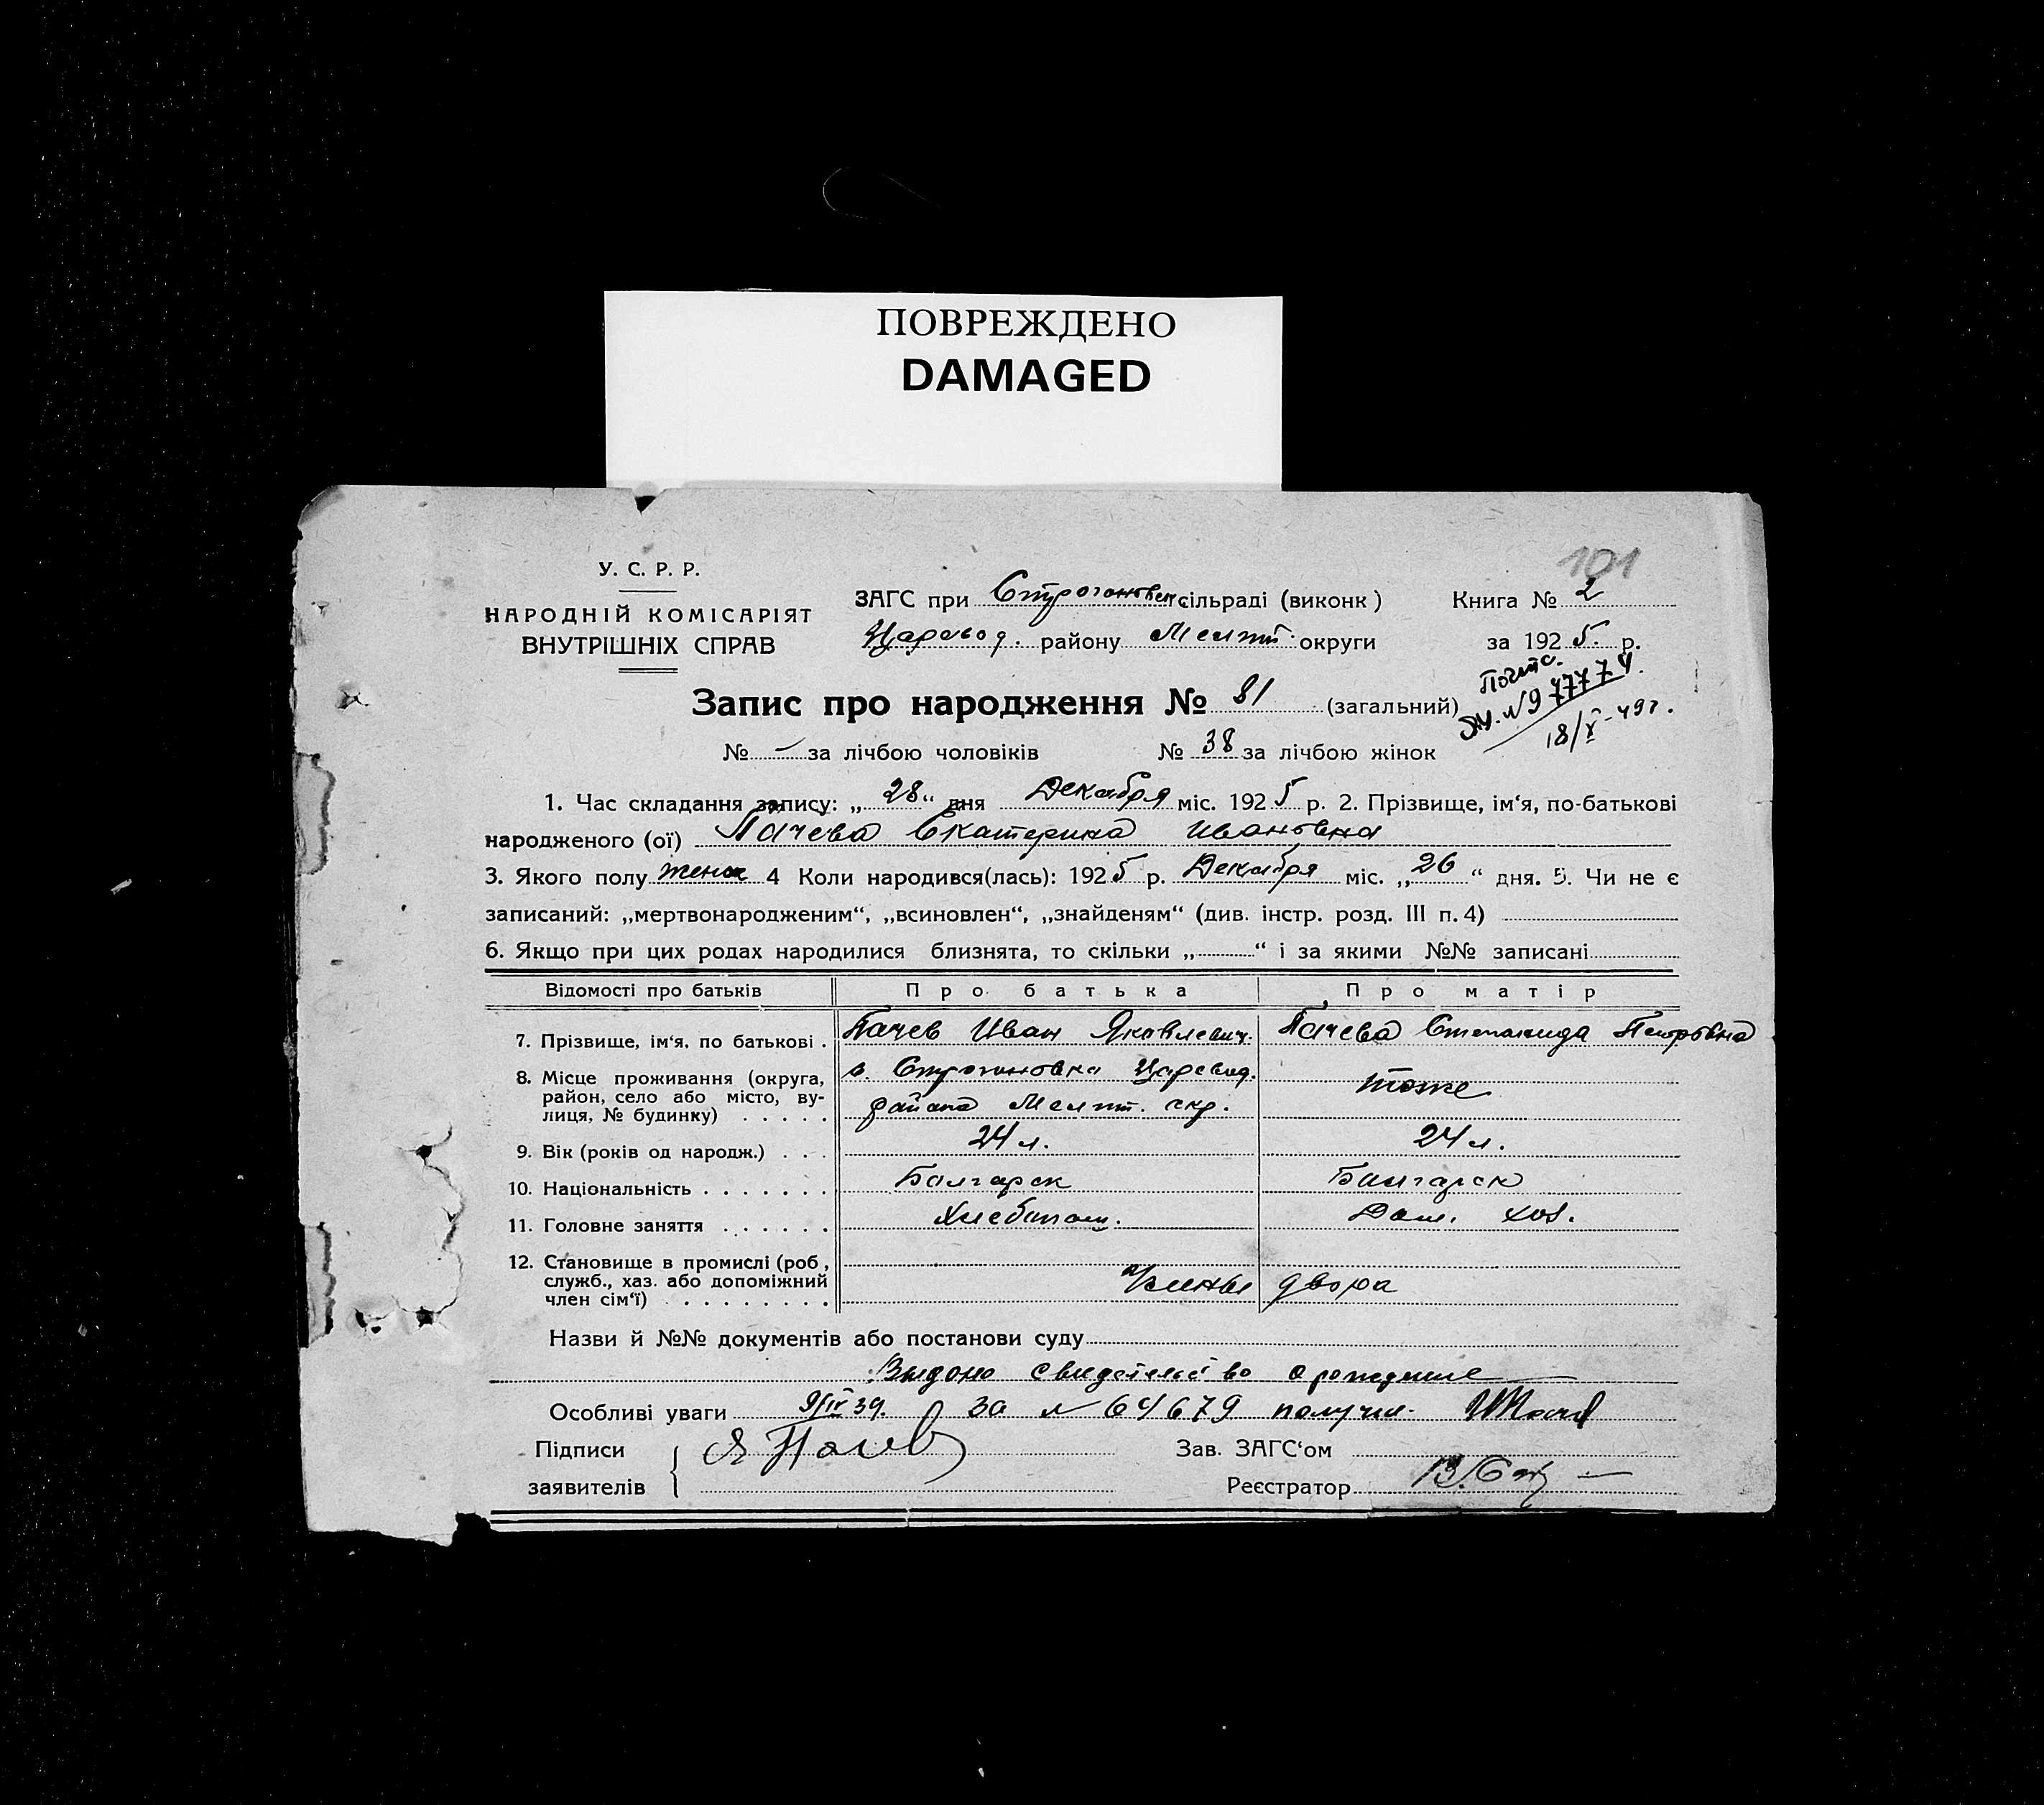 ПОВРЕЖДЕНО
DAMAGED
101
У. С. Р. Р.
НАРОДНІЙ КОМІСАРІЯТ
ВНУТРІШНІХ СПРАВ
ЗАГС при Строгановск. сільраді (виконк)
Царевод. району Меліт. округи
Книга № 2
за 1925 р.
Запис про народження № 81 (загальний)
№ 77774
18/X-49г.
№ — за лічбою чоловіків № 38 за лічбою жінок
1. Час складання запису: „28“ дня Декабря міс. 1925 р. 2. Прізвище, ім‘я, по-батькові
народженого (ої) Пачева Екатерина Ивановна
3. Якого полу женск 4 Коли народився(лась): 1925 р. Декабря міс. „26“ дня. 5. Чи не є
записаний: „мертвонародженим“, „всиновлен“, „знайденям“ (див. інстр. розд. III п. 4)
6. Якщо при цих родах народилися близнята, то скільки „ “ і за якими №№ записані
Відомості про батьків Про батька Про матір
7. Прізвище, ім‘я, по батькові . Пачев Иван Яковлевич. Пачева Степанида Петровна
8. Місце проживання (округа, с. Строгановка Царевод.
район, село або місто, ву- тоже
лиця, № будинку) . . . . . района Мелит. окр.
9. Вік (років од народж.) . . . 24 л. 24 л.
10. Національність . . . . . . . Болгарск Болгарск
11. Головне заняття . . . . . . Хлебопаш. Дом. хоз.
12. Становище в промислі (роб.,
служб., хаз. або допоміжний Члены двора
член сім‘ї) . . . . . . . . .
Назви й №№ документів або постанови суду
Выдано свидетельство о рождение
Особливі уваги 9/IV 39. за № 64679 получил.
Підписи
Зав. ЗАГС‘ом
заявителів
Реєстратор